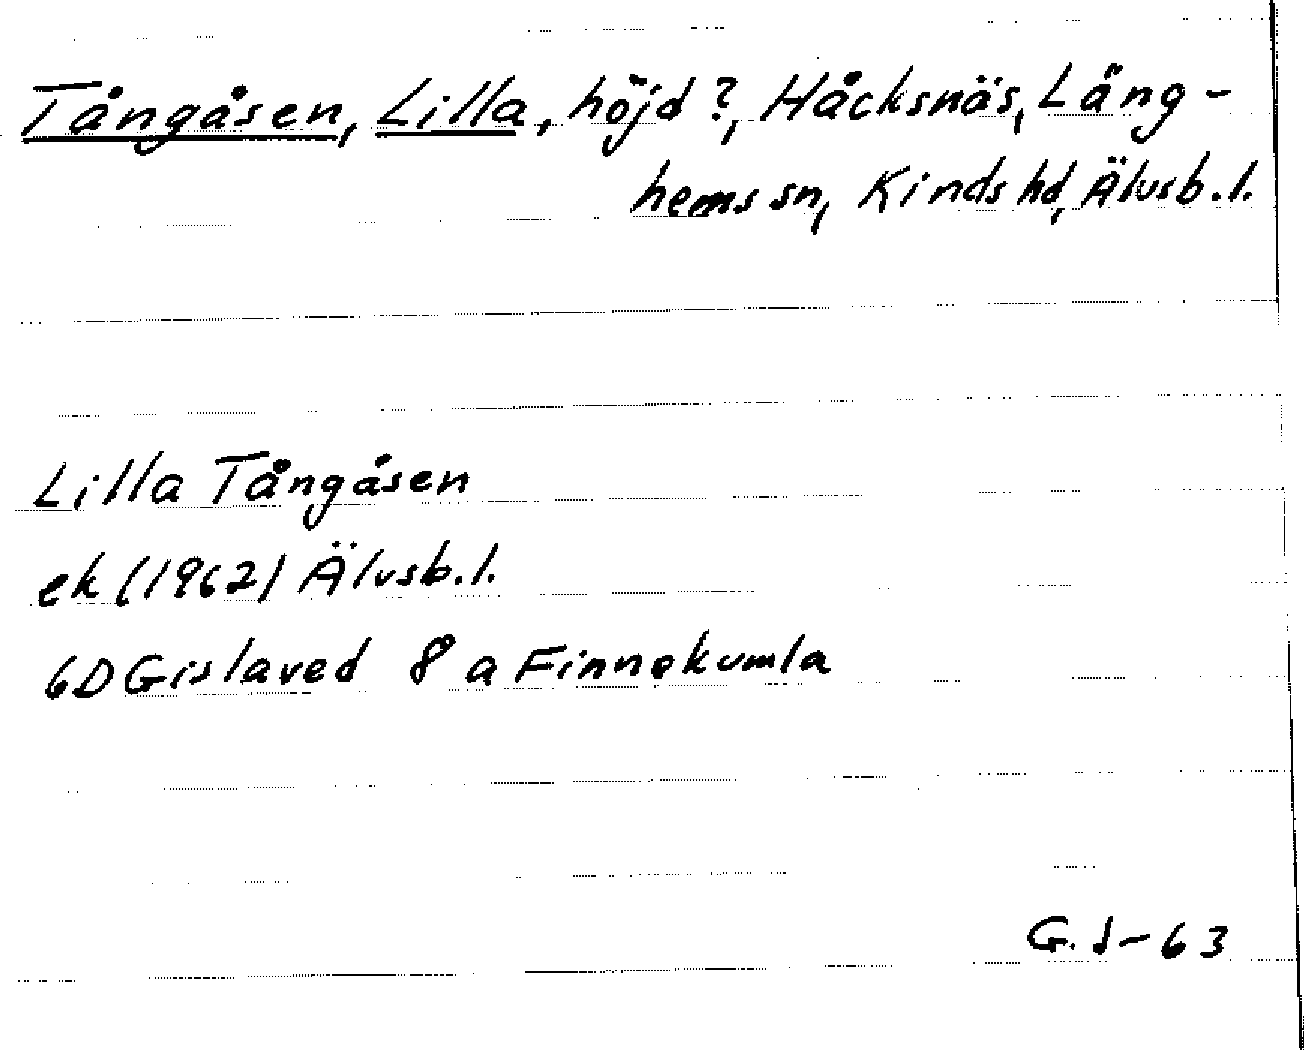 Tångåsen, Lilla, höjd?, Håcksnäs, Läng-
hems sn, Kinds hd, Älvsb. l.
Lilla Tångåsen
ek (1962) Älvsb. l.
6D Gislaved 8 a Finnekumla
G. J-63